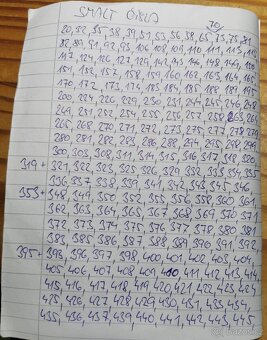 SMALT ČÍSLA
70
20, 32, 35, 38, 39, 51, 53, 56, 58, 65, 73, 75, 81
117, 124, 126, 127, 129, 142, 143, 145, 148, 149, 150
151, 152, 157, 158, 159, 160, 162, 163, 164, 165
200, 224, 226, 229, 230, 231, 244, 245, 246, 248
249, 251, 252, 254, 255, 256, 257, 258, 263, 265
266, 268, 270, 271, 272, 273, 275, 277, 278, 279
280, 281, 282, 283, 286, 288, 294, 295, 298, 299
300, 303, 308, 311, 314, 315, 316, 317, 318, 320
319 + 321, 322, 323, 325, 326, 329, 332, 333, 334, 335
336, 337, 338, 339, 341, 342, 343, 345, 346,
353 + 348, 349, 350, 352, 355, 356, 358, 360, 361
362, 363, 364, 365, 367, 368, 369, 370, 371
372, 373, 374, 375, 376, 377, 378, 380, 381
383, 385, 386, 387, 388, 389, 390, 391, 392
395 + 393, 396, 397, 398, 400, 401, 402, 403, 404
405, 406, 407, 408, 409, 410, 411, 412, 413, 414
415, 416, 417, 418, 419, 420, 421, 422, 423, 424
425, 426, 427, 428, 429, 430, 431, 433, 434,
435, 436, 437, 439, 440, 441, 442, 443, 445,